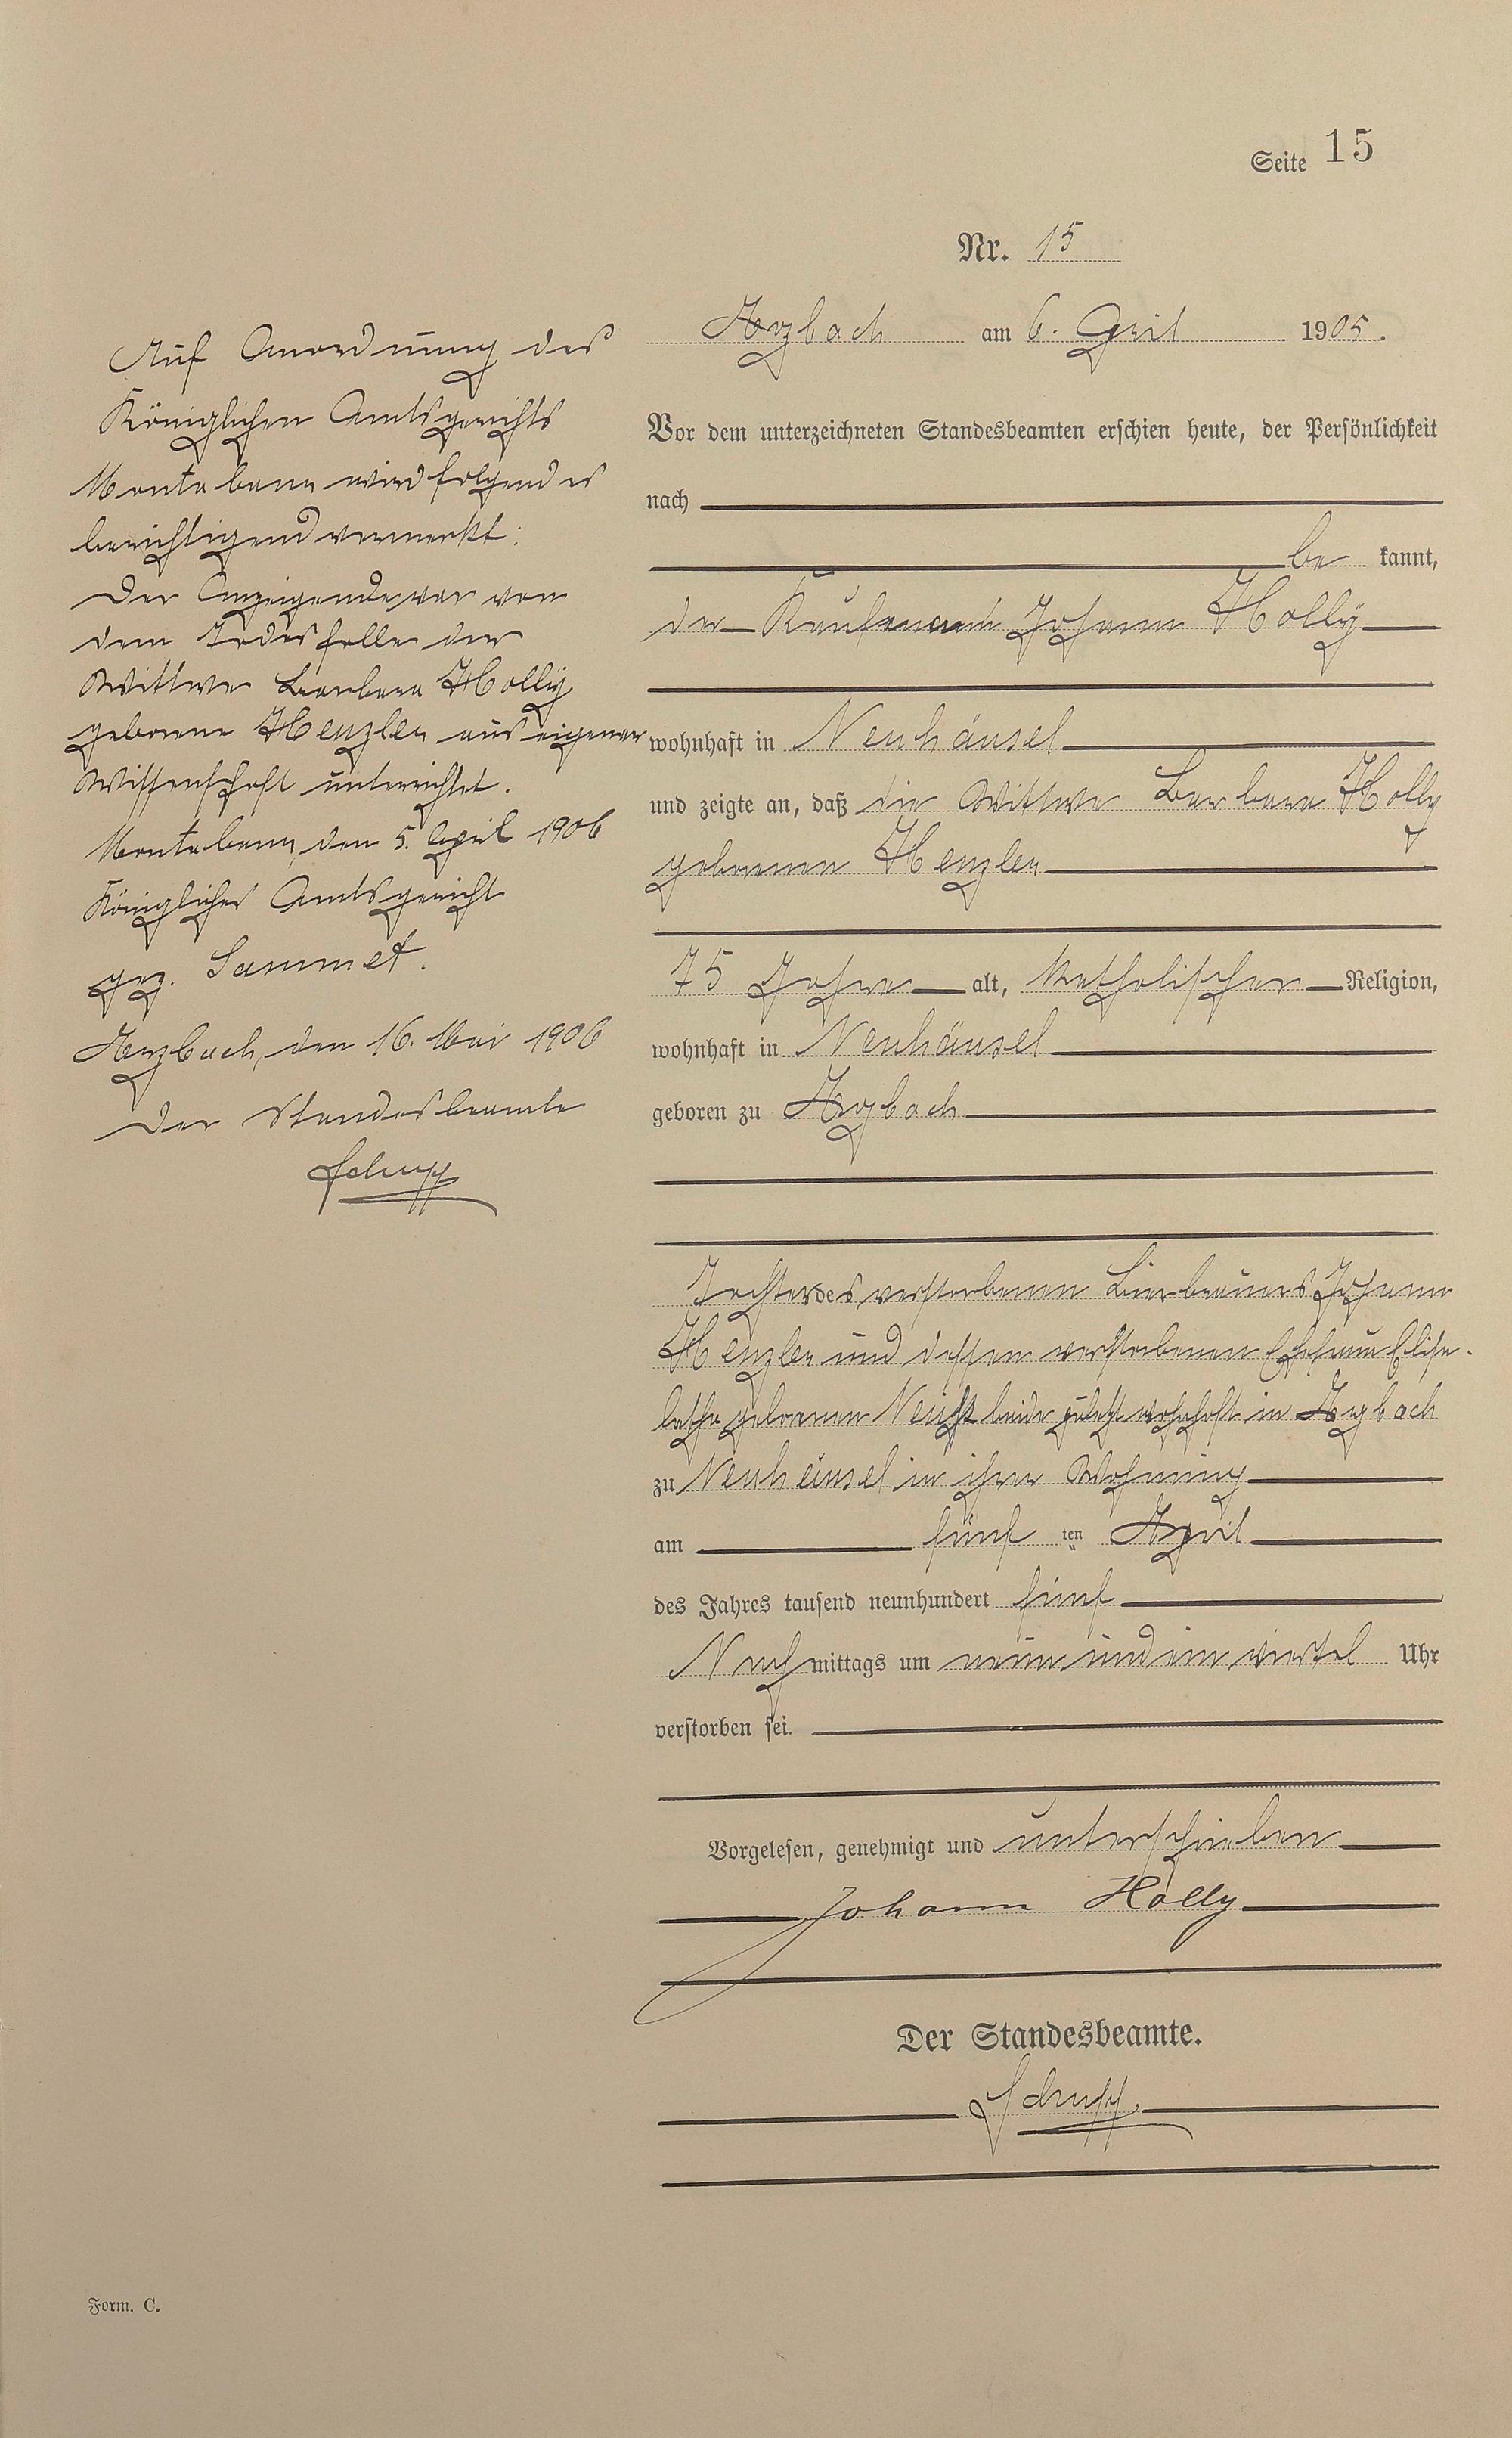 Seite 15
Nr. 15
Arzbach am 6. April 1905.
Vor dem unterzeichneten Standesbeamten erschien heute, der Persönlichkeit
nach
be kannt,
der Kaufmann Johann Holly
wohnhaft in Neuhäusel
und zeigte an, daß die Wittwe Barbara Holly
geborene Henzler
75 Jahre alt, katholischer Religion,
wohnhaft in Neuhäusel
geboren zu Arzbach
Tochter des verstorbenen Bierbrauers Johann
Henzler und dessen verstorbenen Ehefrau Elisa-
betha geborenen beide zuletzt wohnhaft in Arzbach
zu Neuhäusel in ihrer Wohnung
am fünf ten April
des Jahres tausend neunhundert fünf
Nach mittags um neun und ein viertel Uhr
verstorben sei.
Vorgelesen, genehmigt und unterschrieben
Johann Holly
Der Standesbeamte.
Schupp
Auf Anordnung des
Königlichen Amtsgerichts
Montabaur wird folgendes
berichtigend vermerkt:
Der Anzeigende war von
dem Todesfalle der
Wittwe Barbara Holly
geborene Henzler aus eigener
Wissenschaft unterrichtet.
Montabaur, den 5. April 1906
Königliches Amtsgericht
gez. Sammet.
Arzbach, den 16. Mai 1906
Der Standesbeamte
Schupp
Form. C.